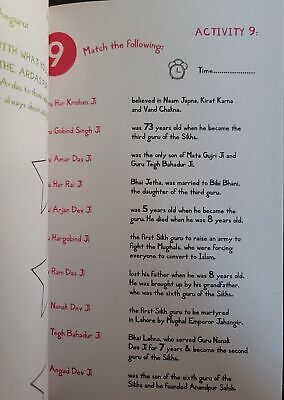 heguru:
WITH WHAT YO
THE ARDAS
Ardas to thank
always about askin
ACTIVITY 9:
9
Match the following:
Time...................
u Har Krishan Ji
believed in Naam Japna, Kirat Karna
and Vand Chakna.
u Gobind Singh Ji
was 73 years old when he became the
third guru of the Sikhs.
u Amar Das Ji
was the only son of Mata Gujri Ji and
Guru Tegh Bahadur Ji.
u Har Rai Ji
Bhai Jetha, was married to Bibi Bhani,
the daughter of the third guru.
u Arjan Dev Ji
was 5 years old when he became the
guru. He died when he was 8 years old.
u Hargobind Ji
the first Sikh guru to raise an army to
fight the Mughals, who were forcing
everyone to convert to Islam.
u Ram Das Ji
lost his father when he was 8 years old.
He was brought up by his grandfather,
who was the sixth guru of the Sikhs.
Nanak Dev Ji
the first Sikh guru to be martyred
in Lahore by Mughal Emperor Jahangir.
Tegh Bahadur Ji
Bhai Lehna, who served Guru Nanak
Dev Ji for 7 years & became the second
guru of the Sikhs.
Angad Dev Ji
was the son of the sixth guru of the
Sikhs and he founded Anandpur Sahib.